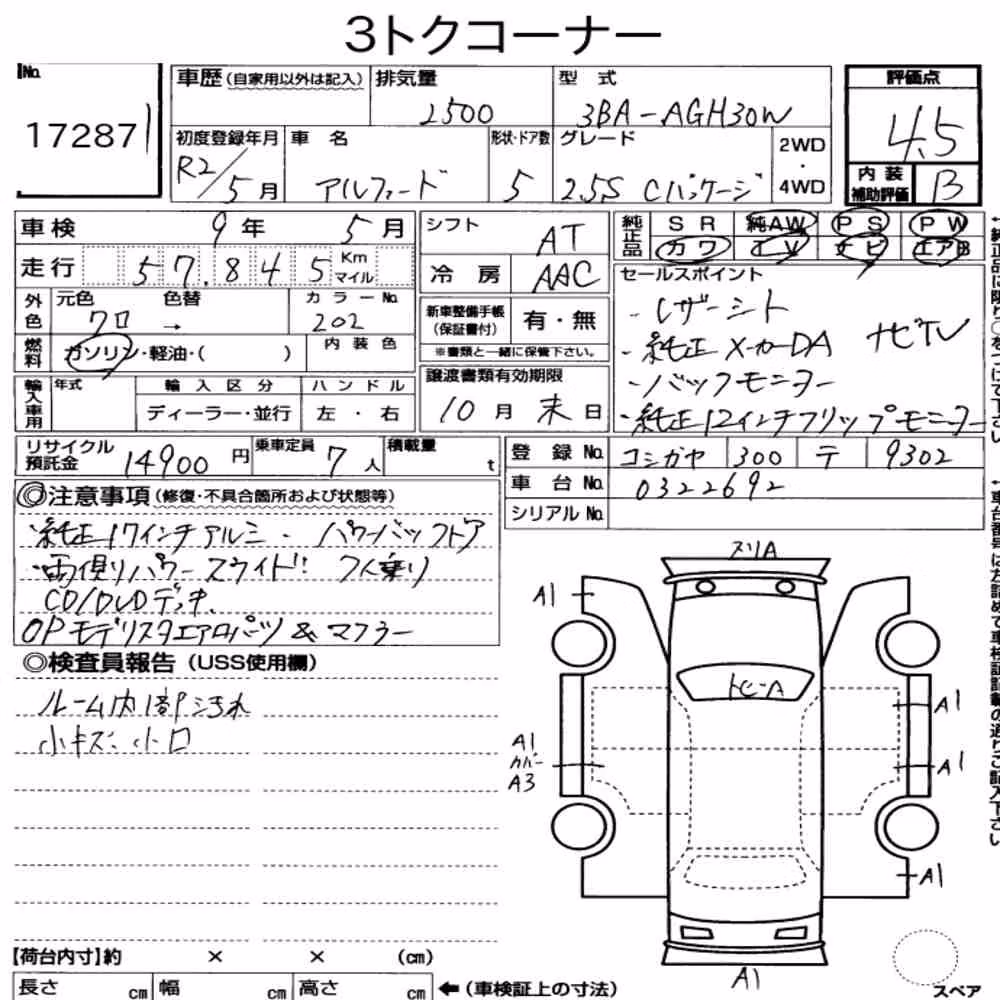 3トクコーナー
No.
17287
車歴 (自家用以外は記入)
排気量
2500
型 式
3BA-AGH30W
評価点
4.5
内装補助評価
B
初度登録年月
R2/5月
車 名
アルファード
形状・ドア数
5
グレード
2.5S Cパッケージ
2WD
・
4WD
車検 9年 5月
走行 57,845 Km マイル
外色
元色 色替
クロ →
カラーNo.
202
燃料
ガソリン・軽油・( )
内装色
輸入車用
年式
輸入区分
ディーラー・並行
ハンドル
左・右
シフト
AT
冷房
AAC
新車整備手帳
(保証書付)
有・無
※書類と一緒に保管下さい。
譲渡書類有効期限
10月末日
純正品
SR 純AW PS PW
カワ TV ナビ エアB
セールスポイント
・レザーシート
・純正メーカーDA ナビTV
・バックモニター
・純正12インチフリップモニター
リサイクル預託金 14900円
乗車定員 7人
積載量 t
登録No. コシガヤ 300 テ 9302
車台No. 0322692
シリアルNo.
◎注意事項 (修復・不具合箇所および状態等)
・純正17インチアルミ・パワーバックドア
・両側パワースライド!! 7人乗り
CD/DVDデッキ、
OPモデリスタエアロパーツ&マフラー
◎検査員報告 (USS使用欄)
ルーム内1部汚れ
小キズ、小凹
スリA
A1
トビーA
A1
A1
カバー
A3
A1
A1
A1
A1
スペア
【荷台内寸】約 × × (cm)
長さ cm 幅 cm 高さ cm ←(車検証上の寸法)
車台番号は左詰めで車検証記載の通りご記入下さい